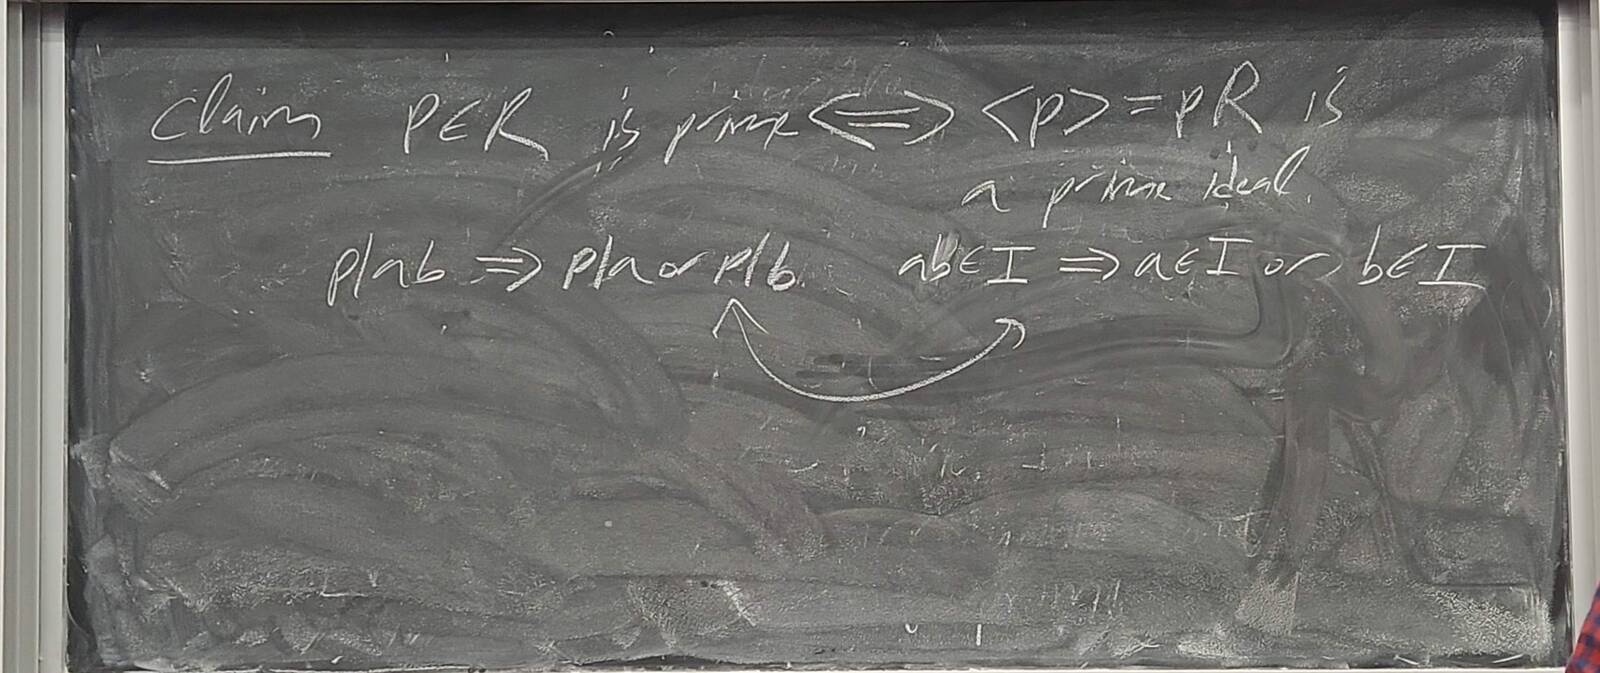 Claim p∈R is prime ⟺ <p> = pR is
a prime ideal.
p|ab ⇒ p|a or p|b. ab∈I ⇒ a∈I or b∈I